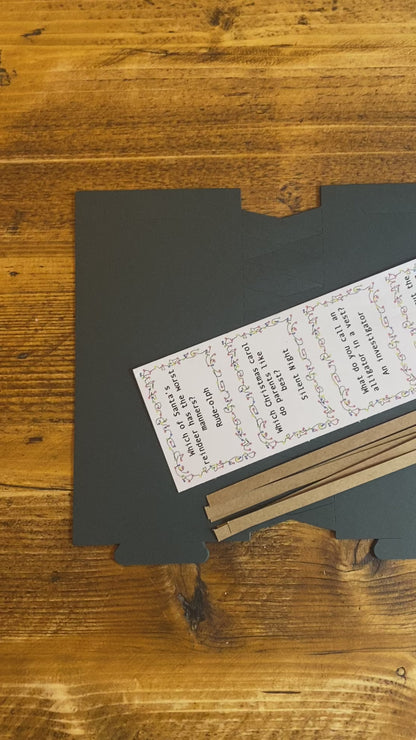 Which of Santa's
reindeer has the worst
manners?
Rude-olph
Which Christmas carol
do parents like
best?
Silent Night
What do you call an
alligator in a vest?
An Investigator
the